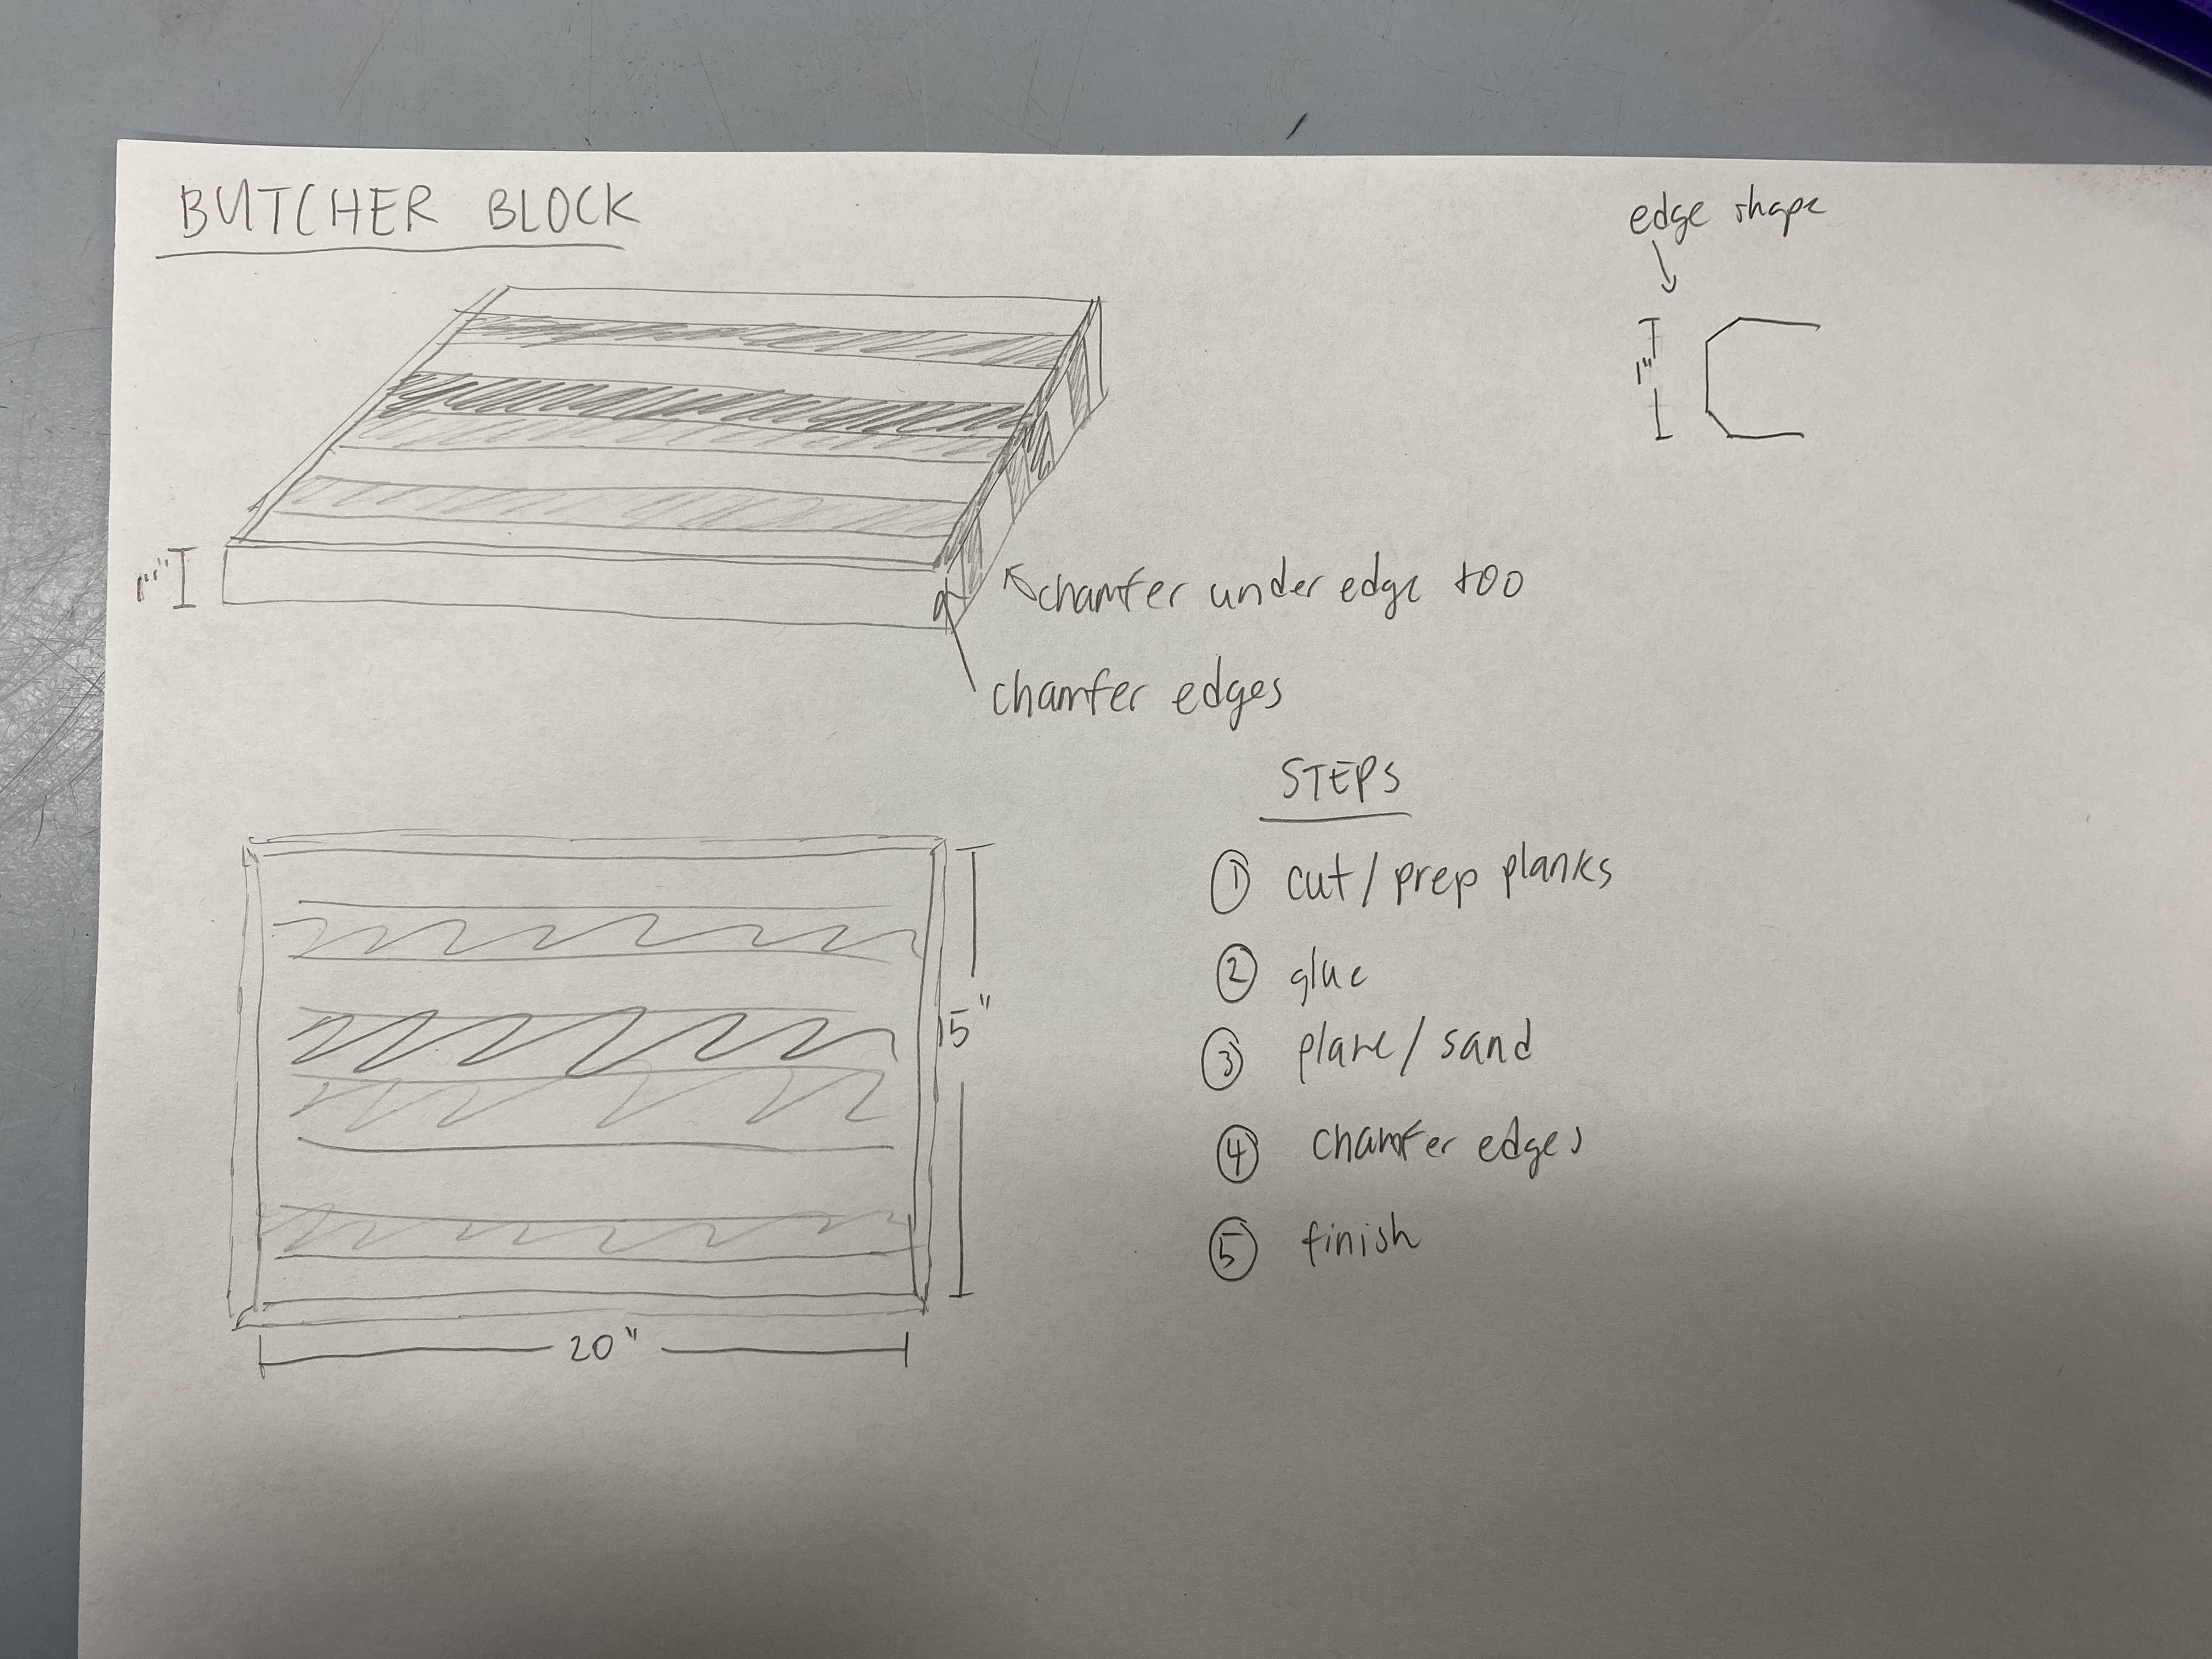 BUTCHER BLOCK
edge shape
1"
1"
chamfer under edge too
chamfer edges
STEPS
① cut/prep planks
② glue
③ plane/sand
④ chamfer edges
⑤ finish
15"
20"